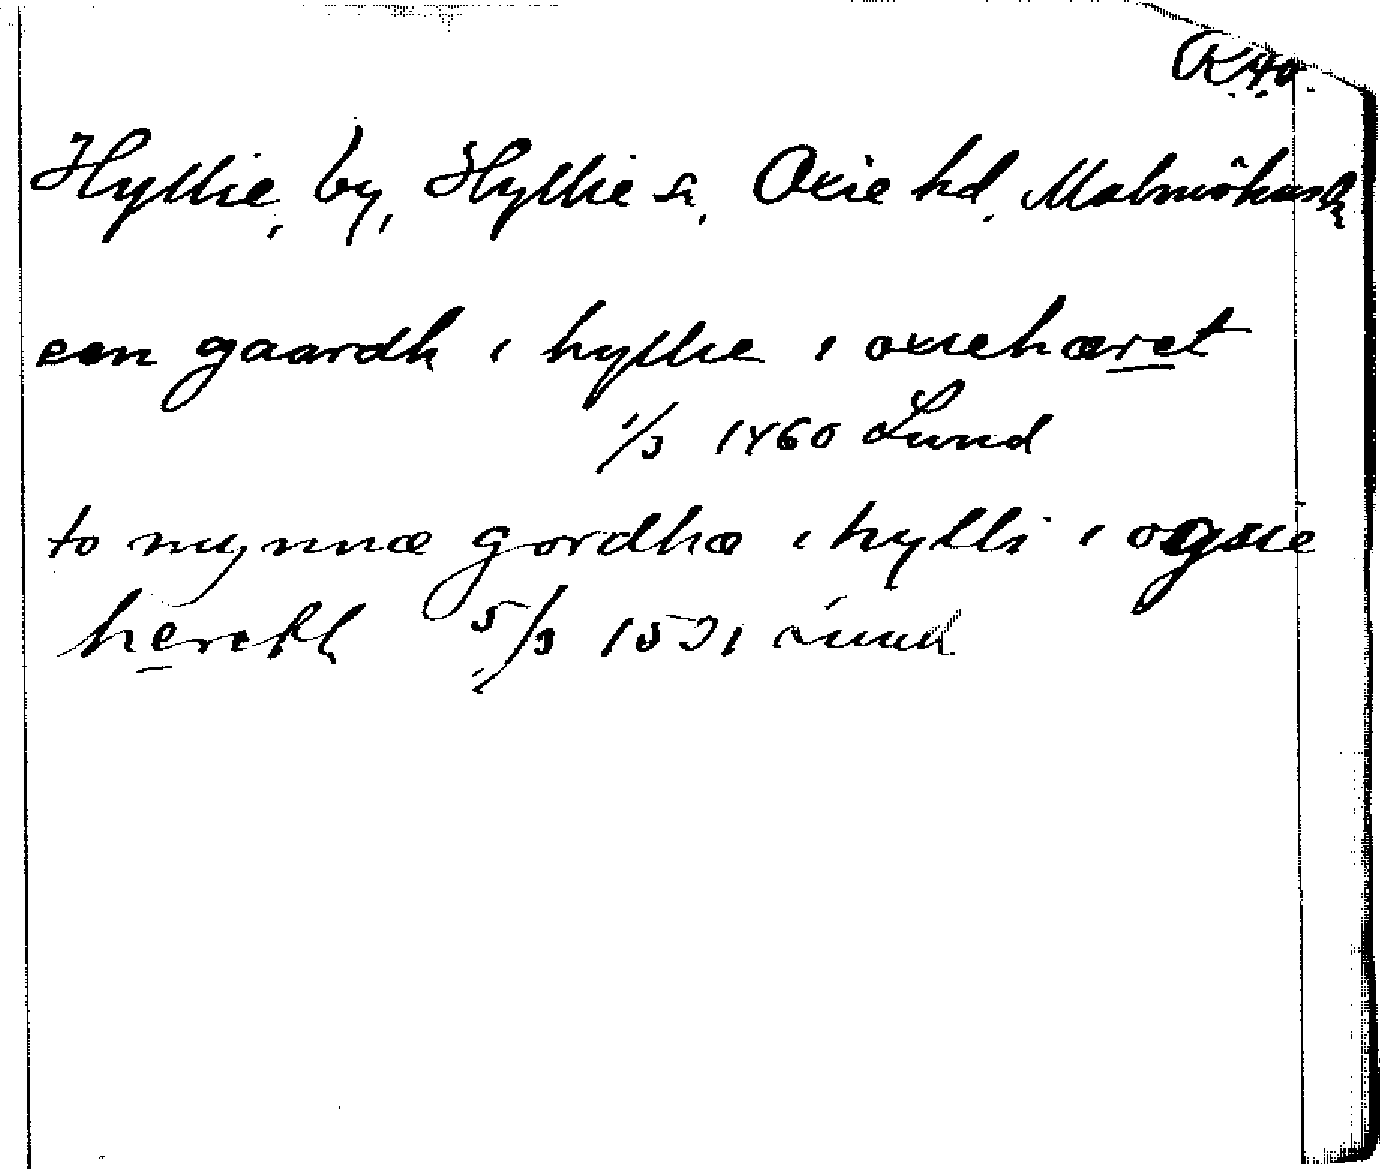 RAO.
Hyllie, by, Hyllie sn, Oxie hd, Malmöhus l
een gaardh i hyllie i oxiehæret
1/3 1460 Lund
to mynnæ gordhæ i hylli i ogsie
hereth 5/3 1531 Lund